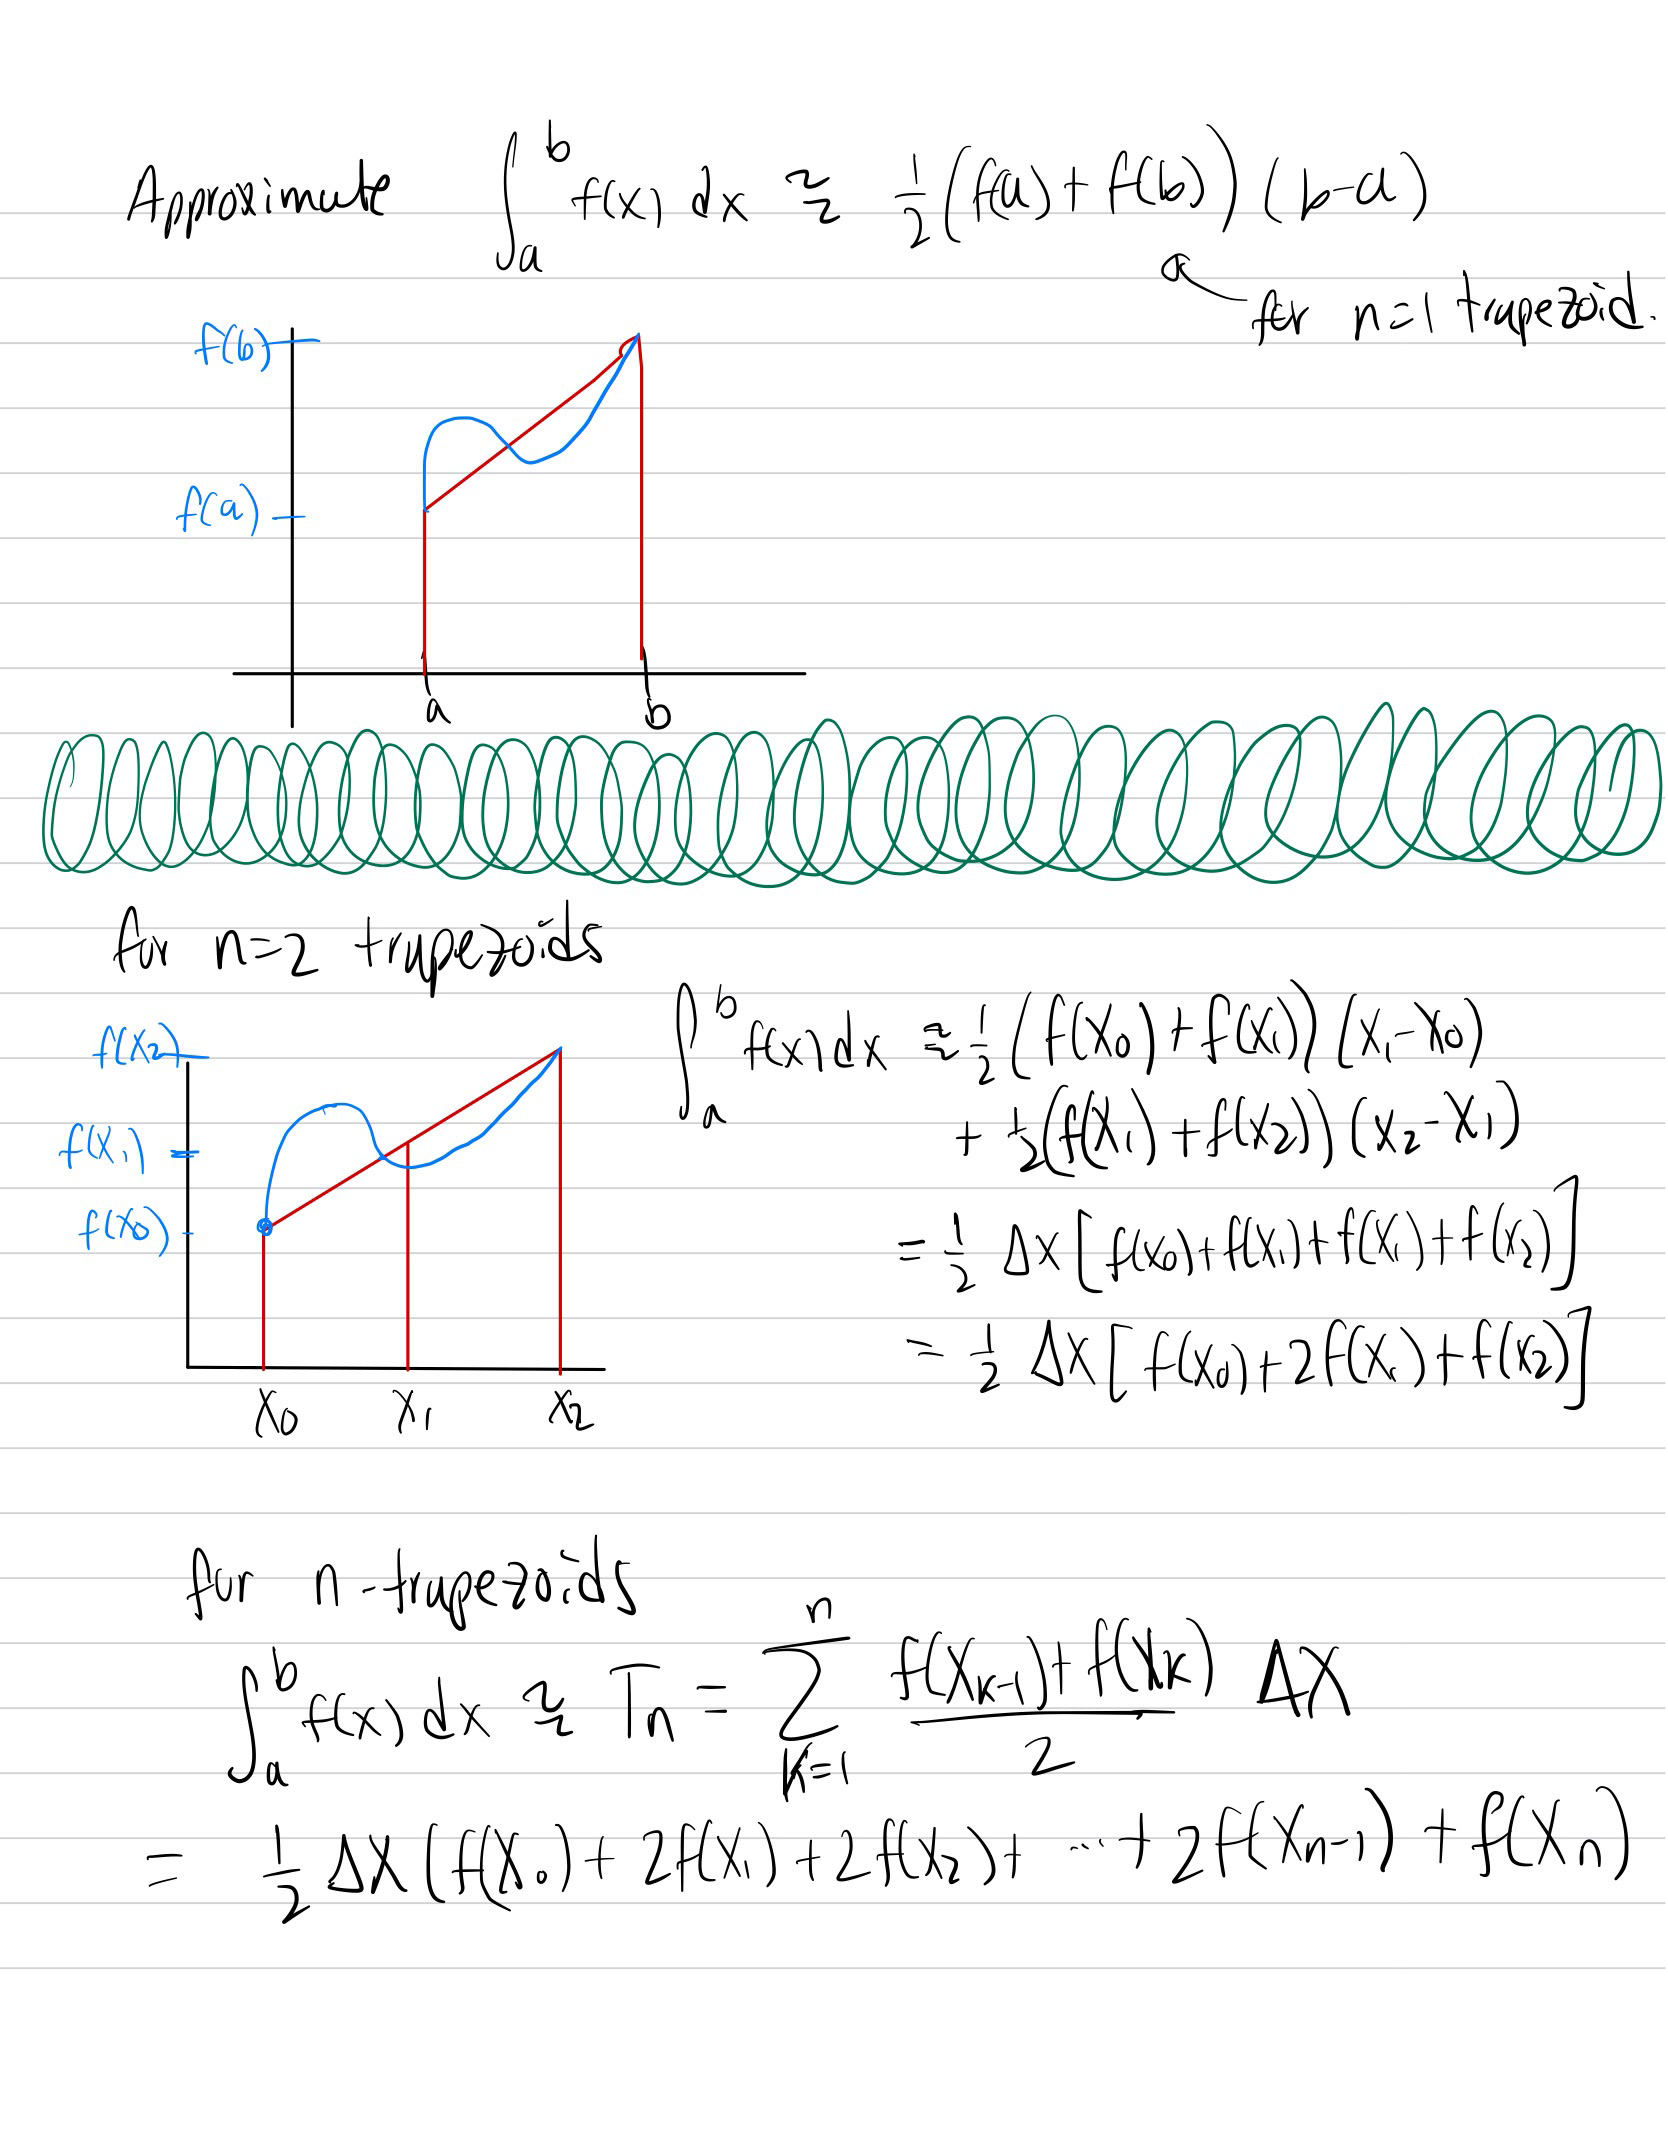 Approximate ∫_a^b f(x) dx ≈ 1/2 (f(a) + f(b)) (b-a)
for n=1 trapezoid.
f(b)
f(a)
a b
for n=2 trapezoids
f(x_2)
f(x_1)
f(x_0)
x_0 x_1 x_2
∫_a^b f(x) dx ≈ 1/2 (f(x_0) + f(x_1)) (x_1 - x_0)
+ 1/2 (f(x_1) + f(x_2)) (x_2 - x_1)
= 1/2 Δx [f(x_0) + f(x_1) + f(x_1) + f(x_2)]
= 1/2 Δx [f(x_0) + 2f(x_1) + f(x_2)]
for n-trapezoids
∫_a^b f(x) dx ≈ T_n = Σ_{k=1}^n (f(x_{k-1}) + f(x_k))/2 Δx
= 1/2 Δx (f(x_0) + 2f(x_1) + 2f(x_2) + ... + 2f(x_{n-1}) + f(x_n)